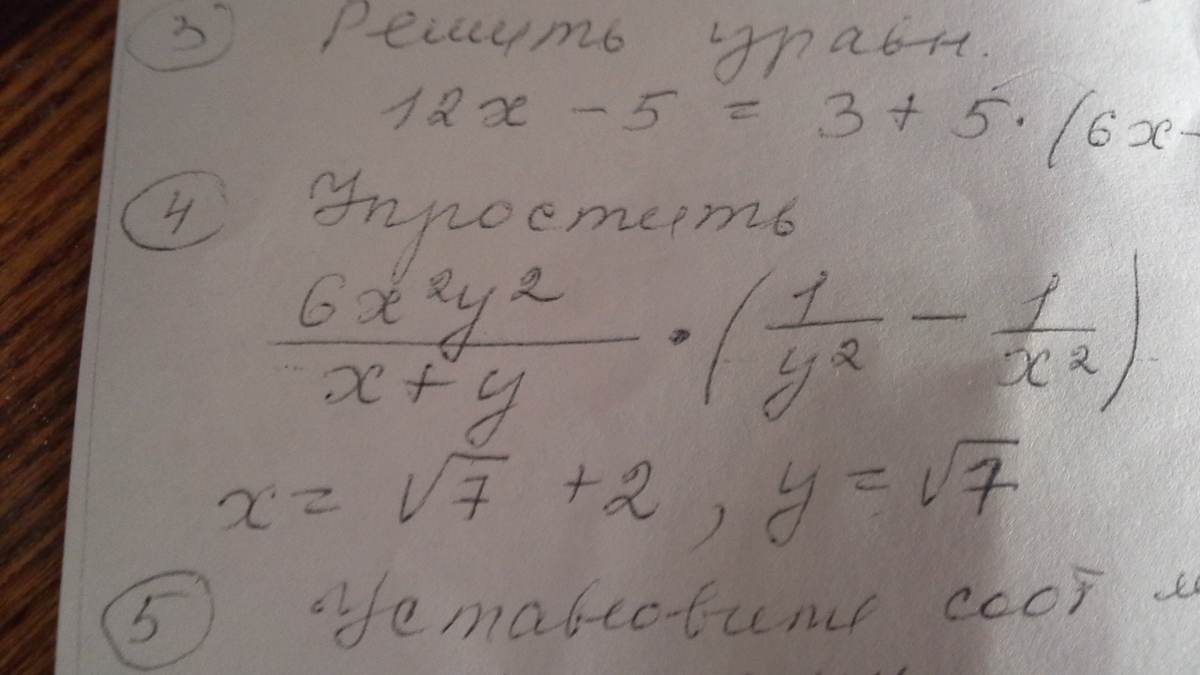 ③ Решить уравн.
12x - 5 = 3 + 5 · (6x -
④ Упростить
6x²y² / x + y · (1 / y² - 1 / x²)
x = √7 + 2, y = √7
⑤ Установите соот